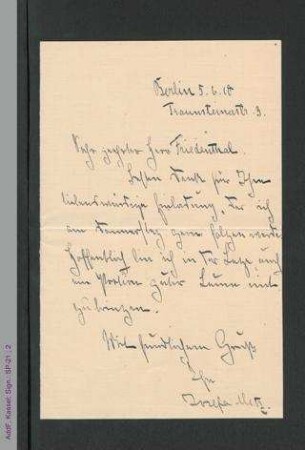 Berlin 5.6.10
Traunsteinerstr. 3.
Sehr geehrter Herr Friedenthal.
Besten Dank für Ihre
liebenswürdige Einladung, der ich
am Donnerstag gern folgen werde
Hoffentlich bin ich in der Lage auch
eine Portion guter Laune mit
zu bringen.
Mit freundlichem Gruß
Ihr
AddF, Kassel; Sign.: SP-21 ; 2